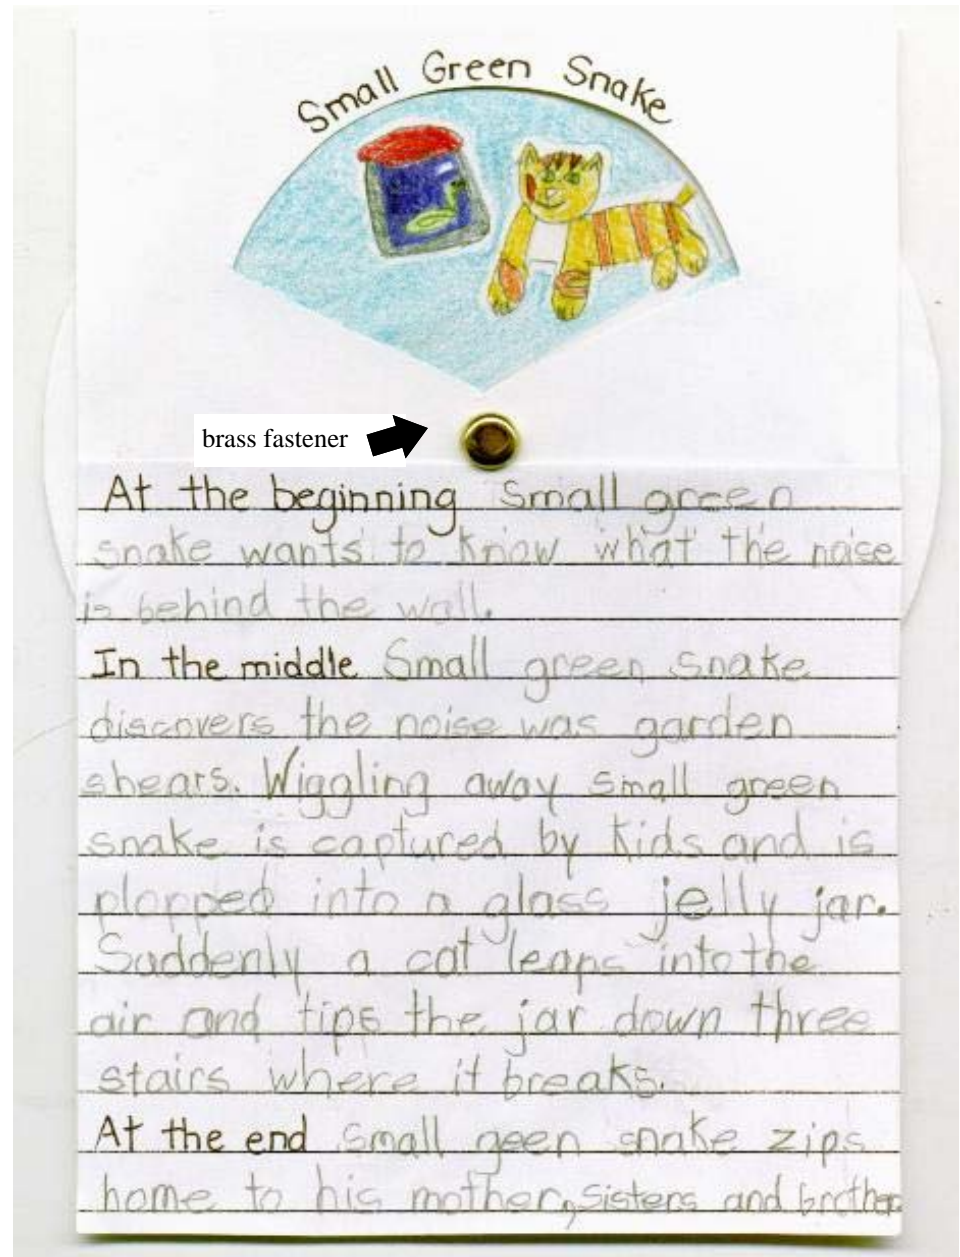 Small Green Snake
brass fastener
At the beginning Small green
snake wants to know what the noise
is behind the wall.
In the middle Small green snake
discovers the noise was garden
shears. Wiggling away small green
snake is captured by kids and is
plopped into a glass jelly jar.
Suddenly a cat leaps into the
air and tips the jar down three
stairs where it breaks.
At the end Small geen snake zips
home to his mother, sisters and brother